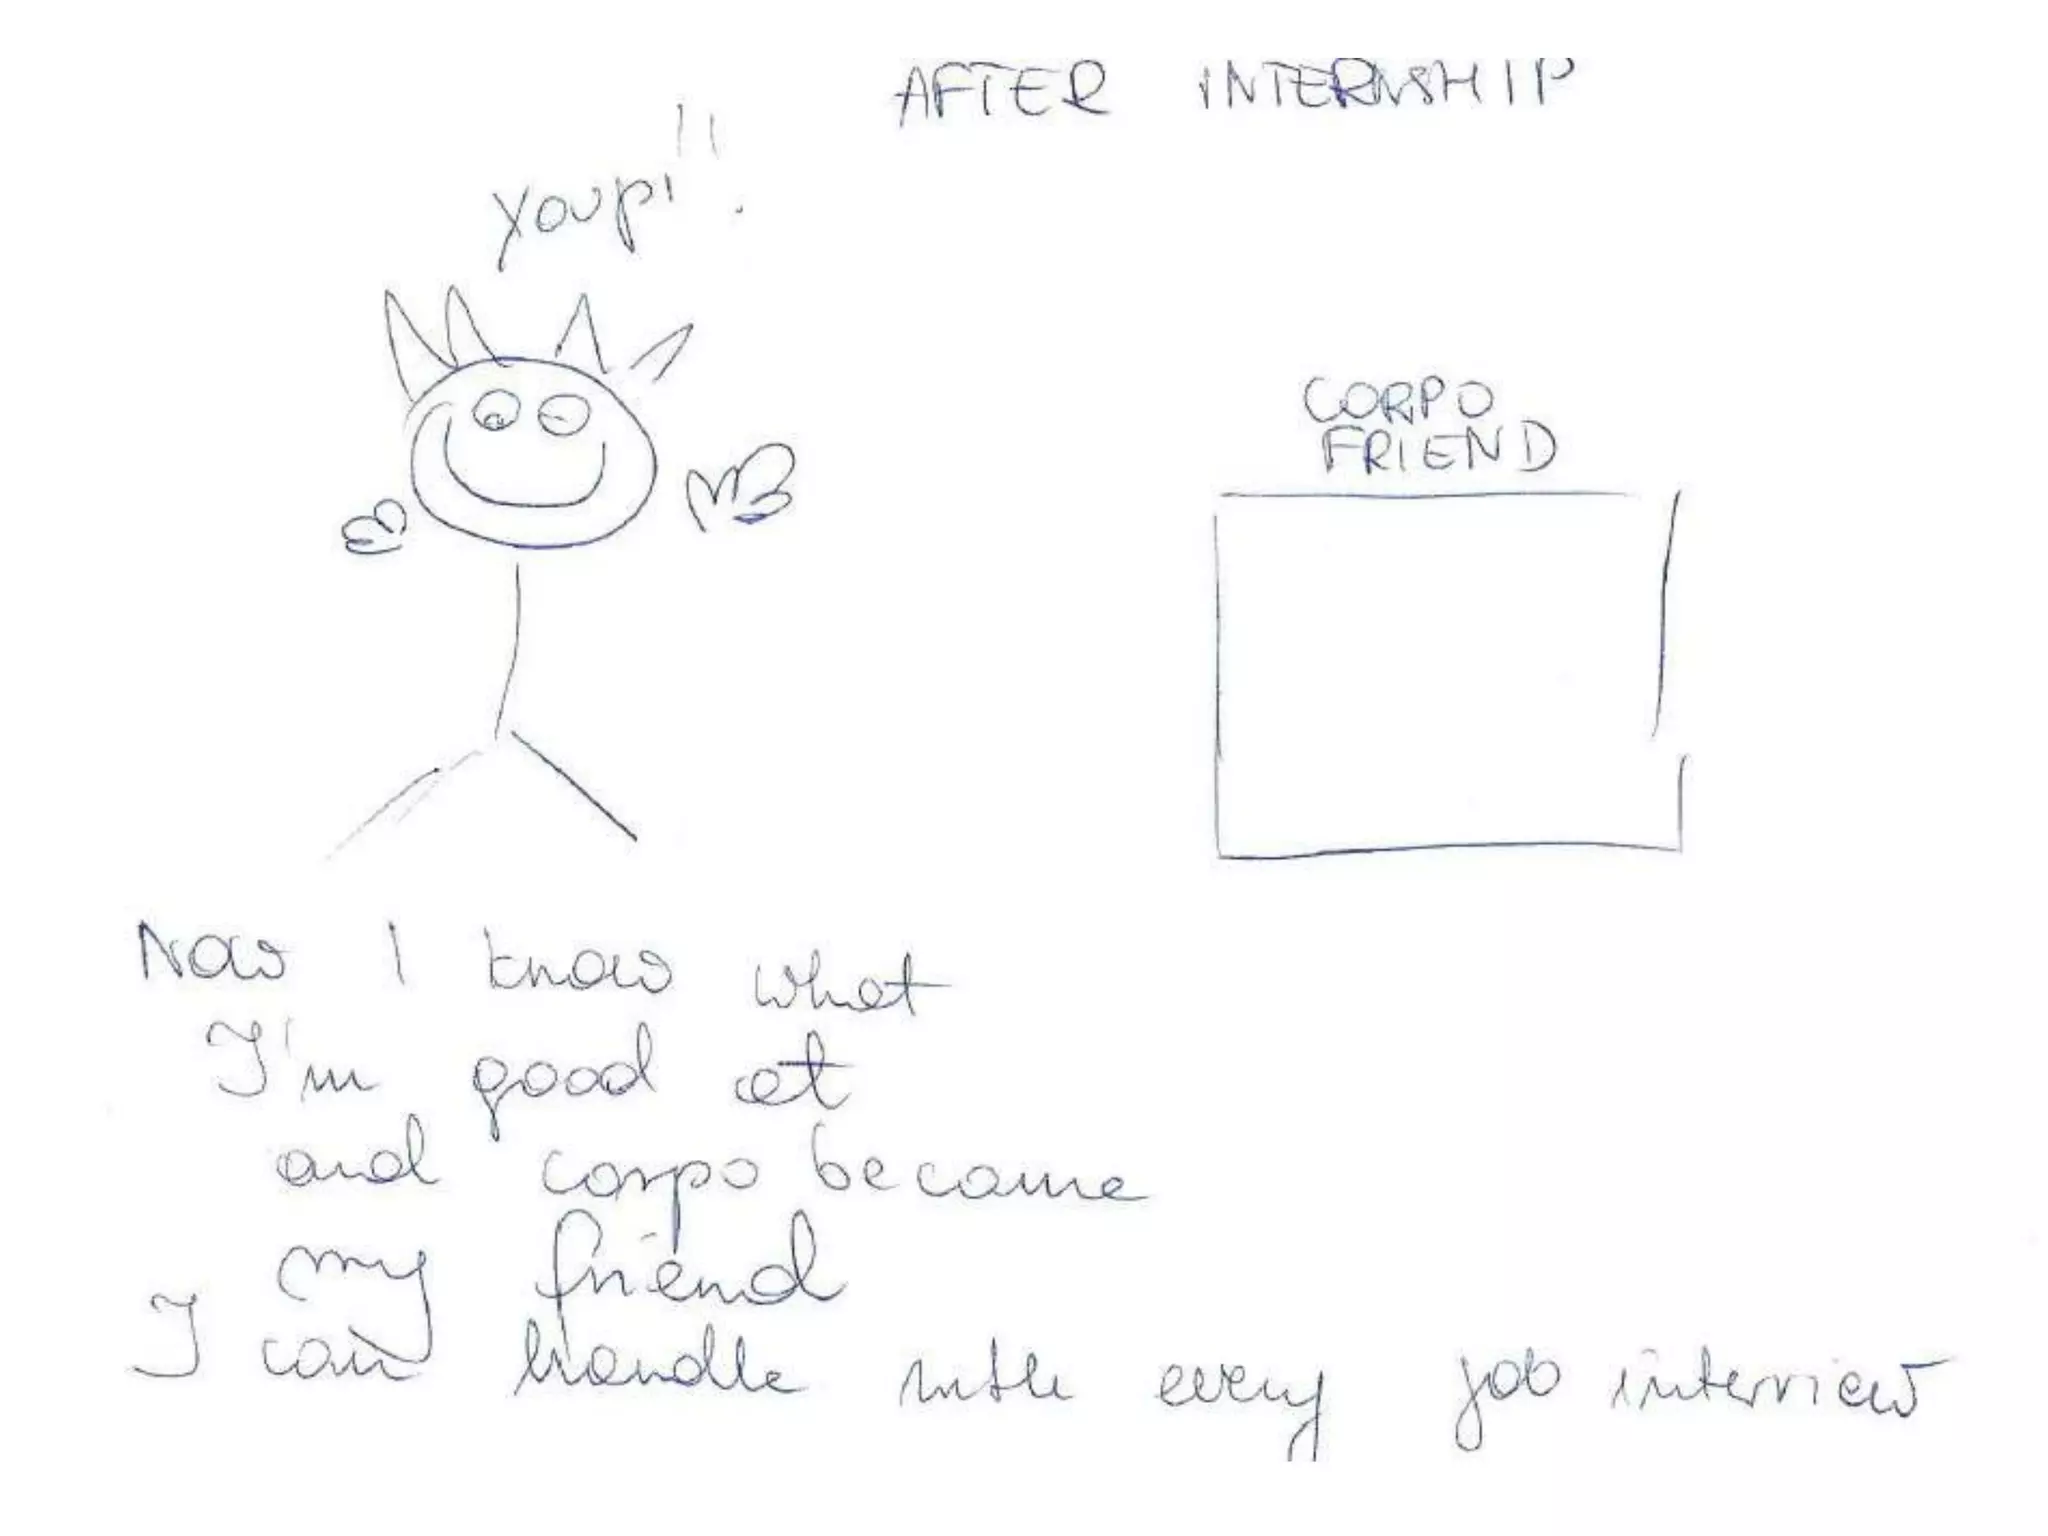 AFTER INTERNSHIP
Youpi!!
CORPO
FRIEND
Now I know what
I'm good at
and corpo became
my friend
I can handle with every job interview